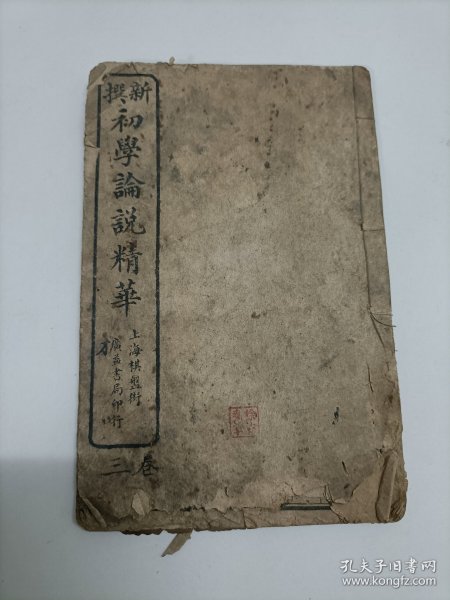 新撰
初學論說精華
上海棋盤街
廣益書局印行
卷三
孔夫子旧书网
www.kongfz.com